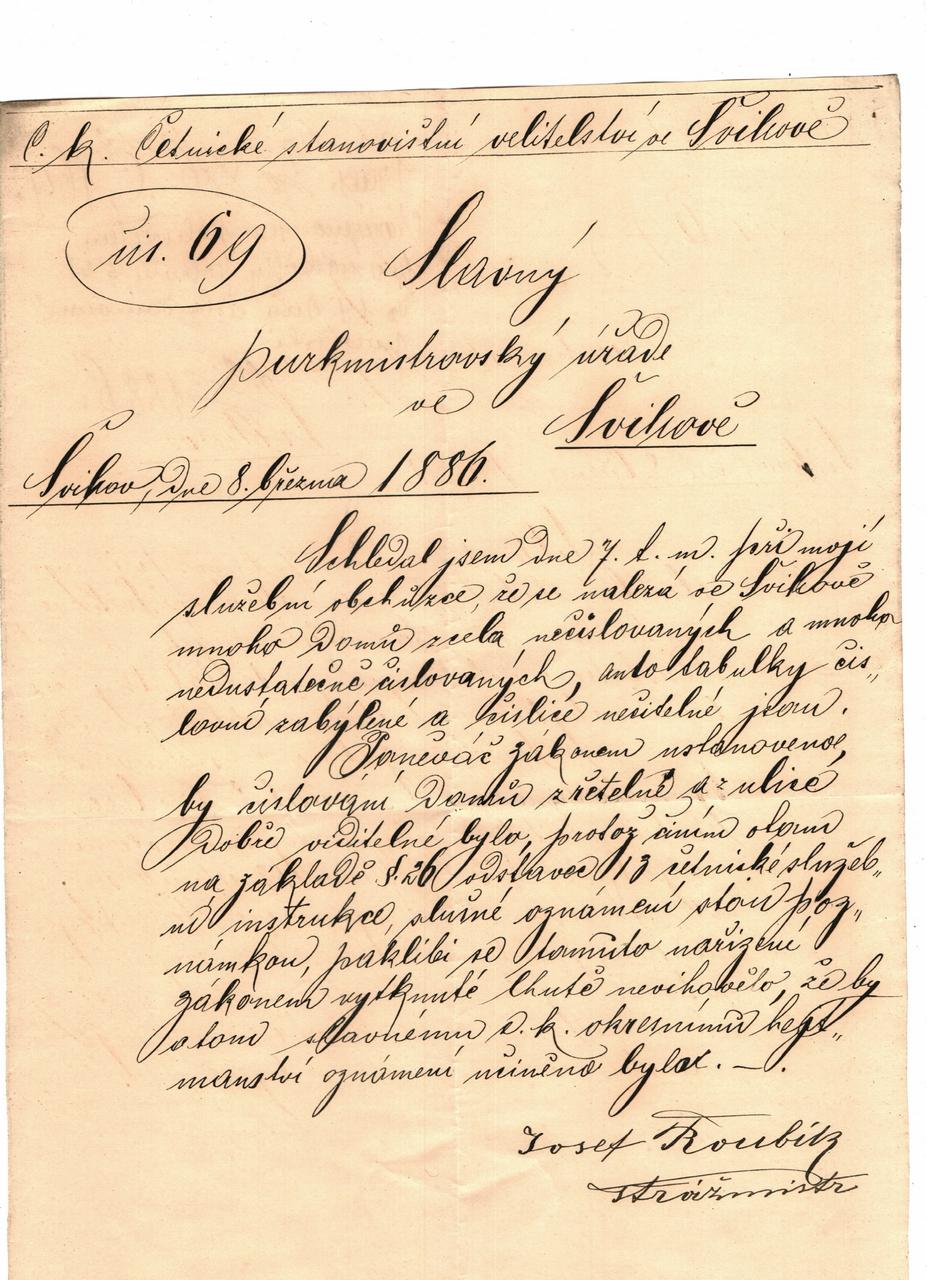 C. k. Četnické stanovištní velitelství ve Švihově
čís. 69
Slavný
purkmistrovský úřade
ve
Švihově
Švihov, dne 8. března 1886.
Schledal jsem dne 7. t. m. při mojí
služební obchůzce, že se nalezá ve Švihově
mnoho domů zcela nečíslovaných a mnoho
nedustatečně číslovaných, anto tabulky čís„
lovní zabýlené a číslice nečitelné jsou.
Poněváč zákonem ustanoveno,
by číslování domů zřetelně a z ulice
dobře viditelné bylo, protož činím otom
na základě §. 26 odstavec 13 četnické služeb„
ní instrukce, slušné oznámení stou poz„
námkou, paklibi se tomuto nařízení
zákonem vytknuté lhutě nevihovělo, že by
otom slavnému c. k. okresnímu hejt„
manství oznámení učiněno bylo. —.
Josef Roubík
strážmistr